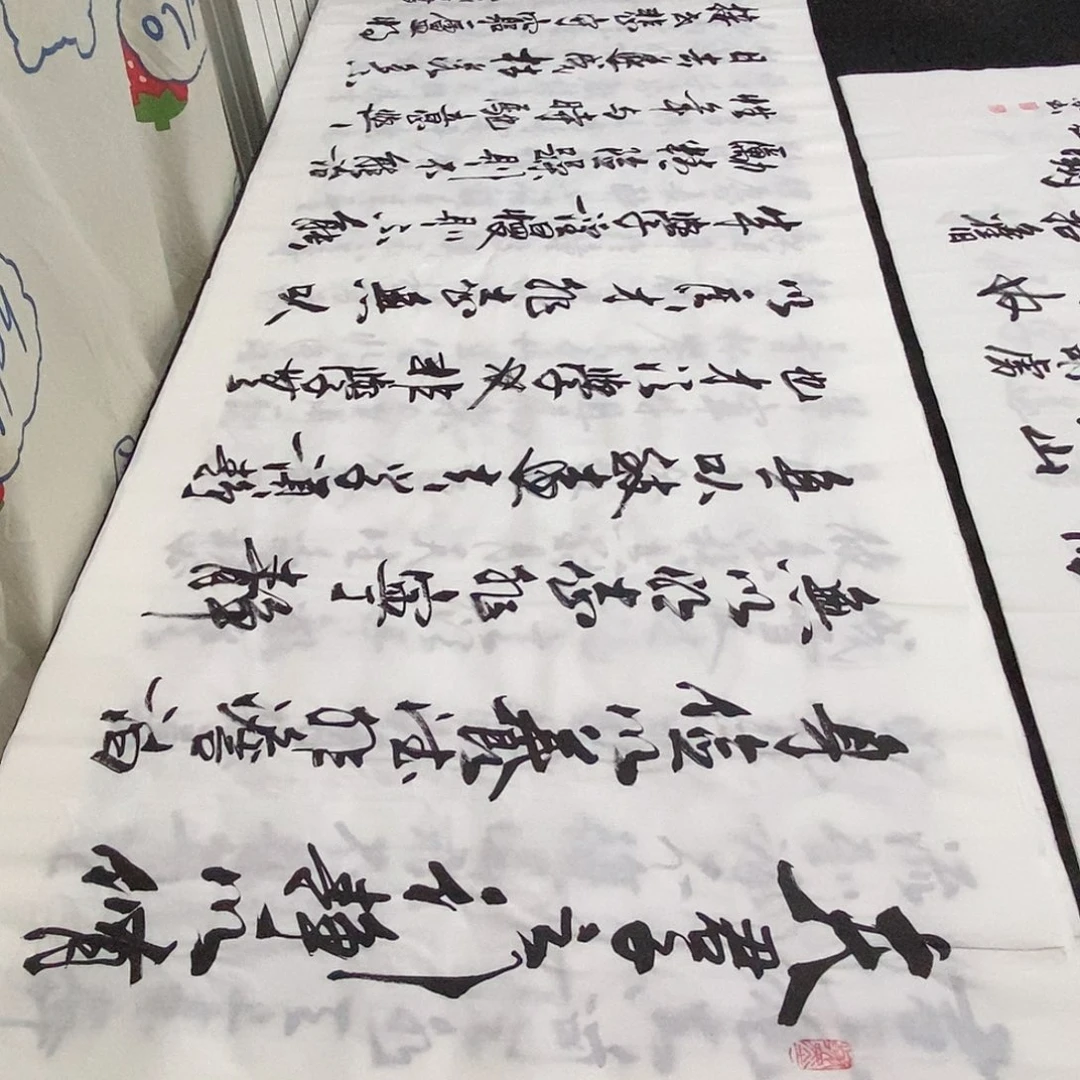 夫君子之行靜以修
身儉以養德非澹泊
無以明志非寧靜
無以致遠夫學須靜
也才須學也非學無
以廣才非志無以
成學淫慢則不能
勵精險躁則不能治
性年與時馳意與
日去遂成枯落多
接世悲守窮廬將
山